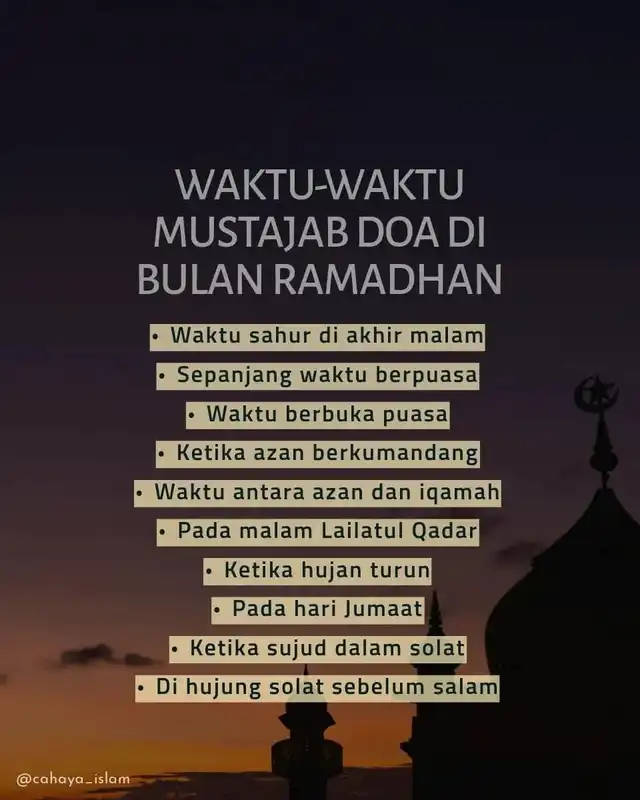 WAKTU-WAKTU
MUSTAJAB DOA DI
BULAN RAMADHAN
• Waktu sahur di akhir malam
• Sepanjang waktu berpuasa
• Waktu berbuka puasa
• Ketika azan berkumandang
• Waktu antara azan dan iqamah
• Pada malam Lailatul Qadar
• Ketika hujan turun
• Pada hari Jumaat
• Ketika sujud dalam solat
• Di hujung solat sebelum salam
@cahaya_islam